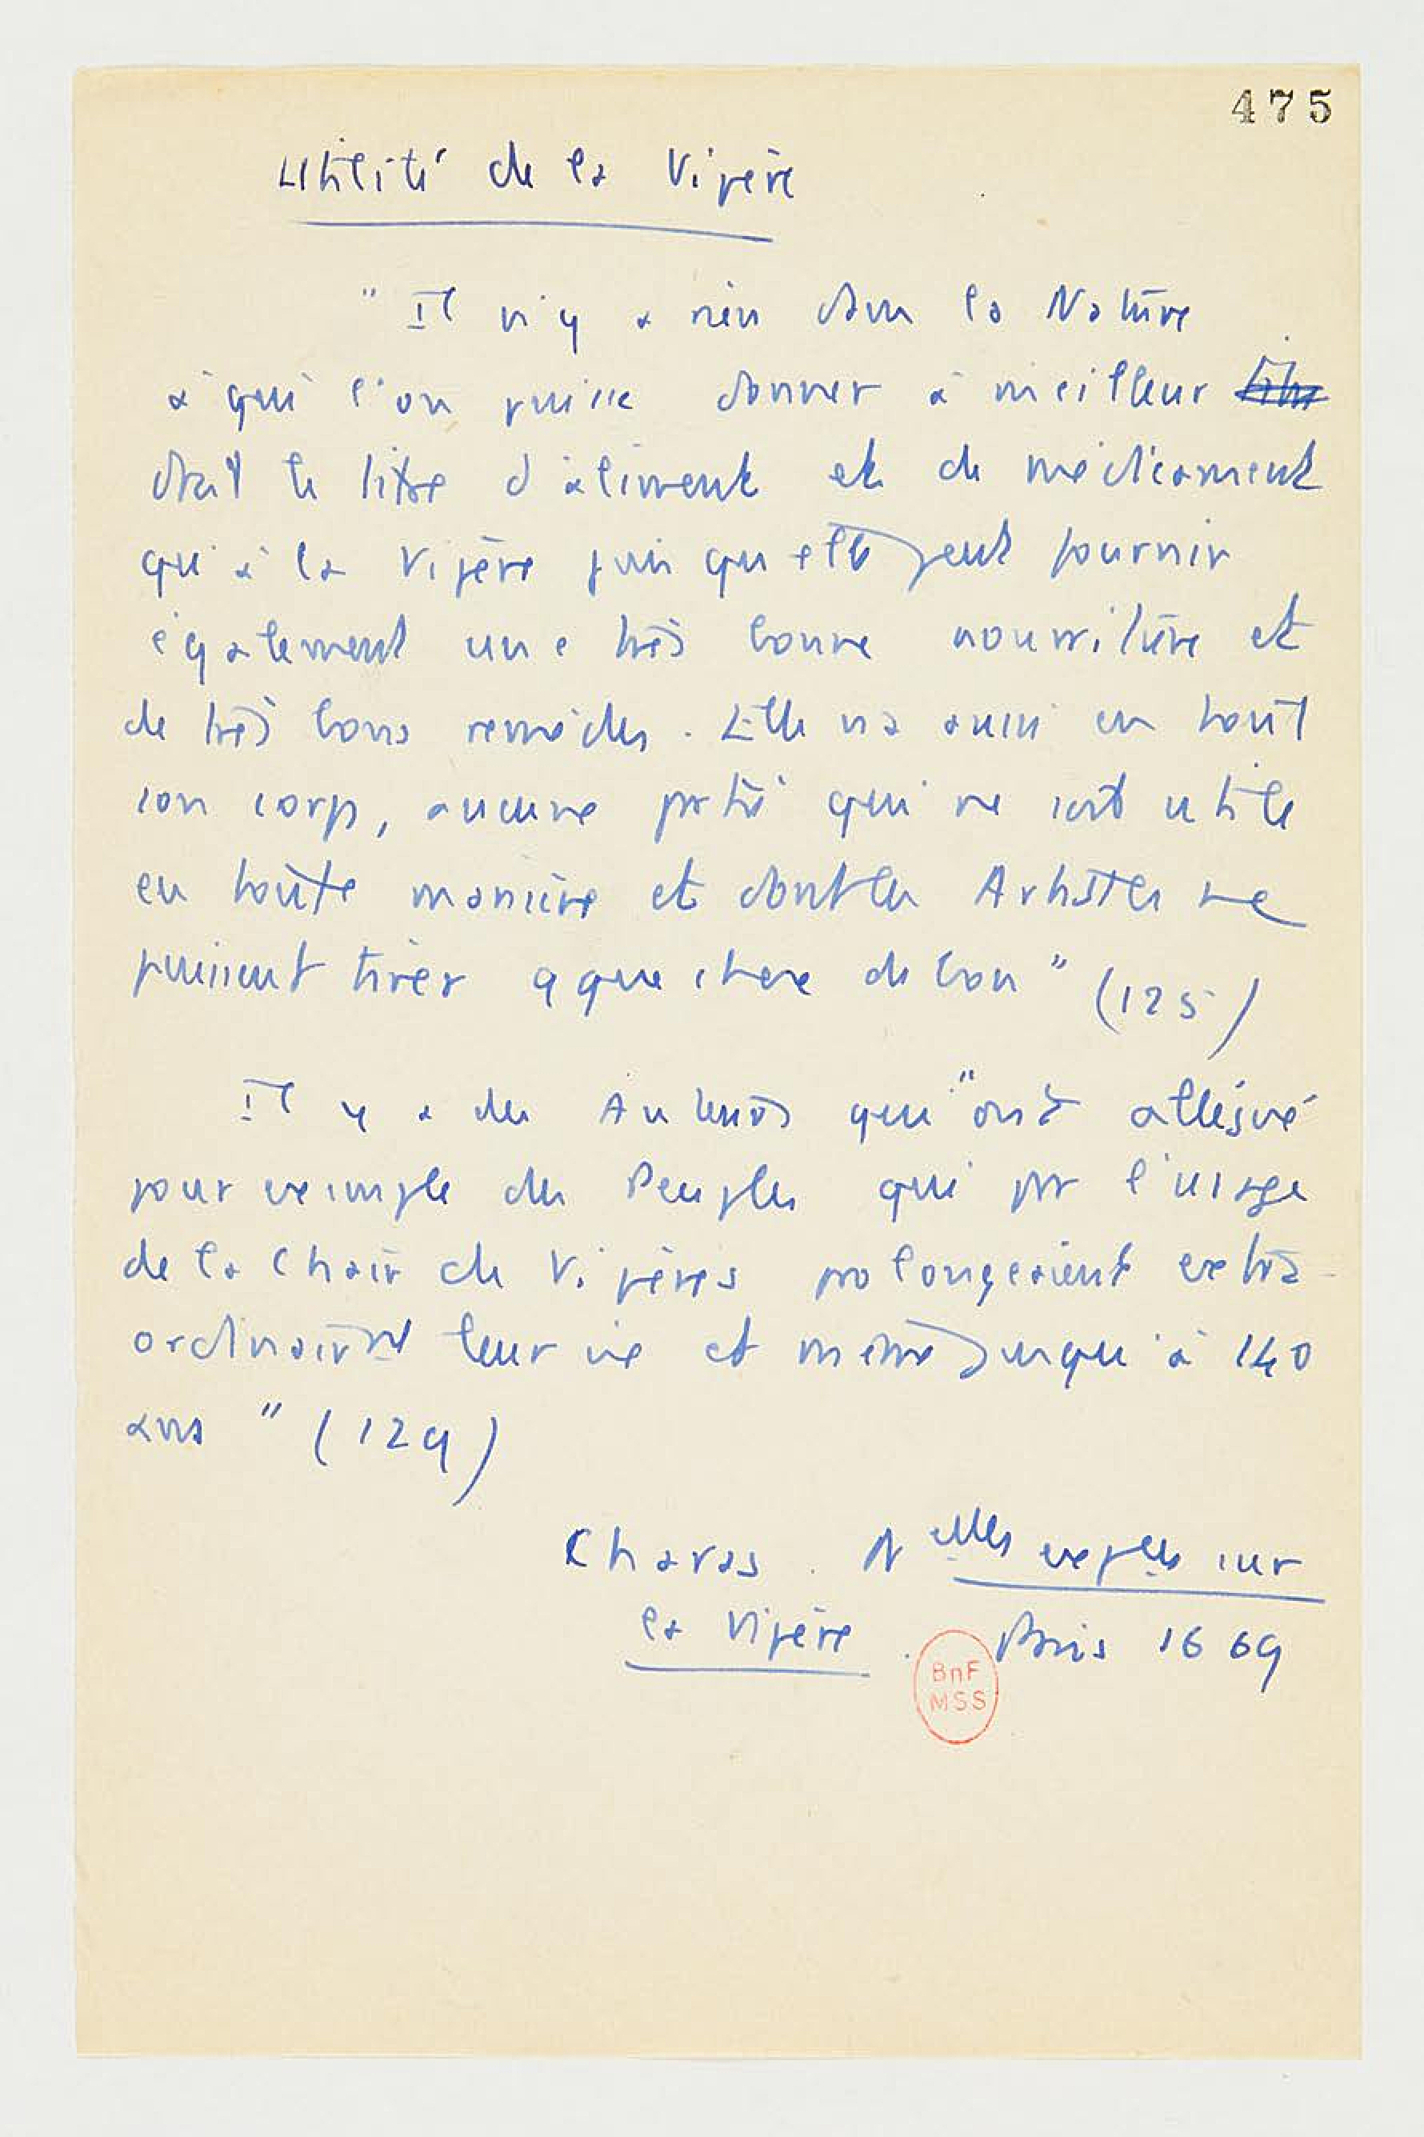 475
Utilité de la Vipère
" Il n'y a rien dans la Nature
à qui l'on puisse donner à meilleur
droit le titre d'aliment et de médicament
qu'à la Vipère puis qu'elle peut fournir
également une très bonne nourriture et
de très bons remèdes. Elle n'a aussi en tout
son corps, aucune partie qui ne soit utile
en toute manière et dont les Artistes ne
puissent tirer qque chose de bon " (125)
Il y a des Auteurs qui "ont allégué
pour exemple des Peuples qui par l'usage
de la Chair de Vipères prolongeaient extra-
ordinairemt leur vie et même jusqu'à 140
ans " (129)
Charas. Nelles expces sur
la Vipère. Paris 1669
BnF
MSS